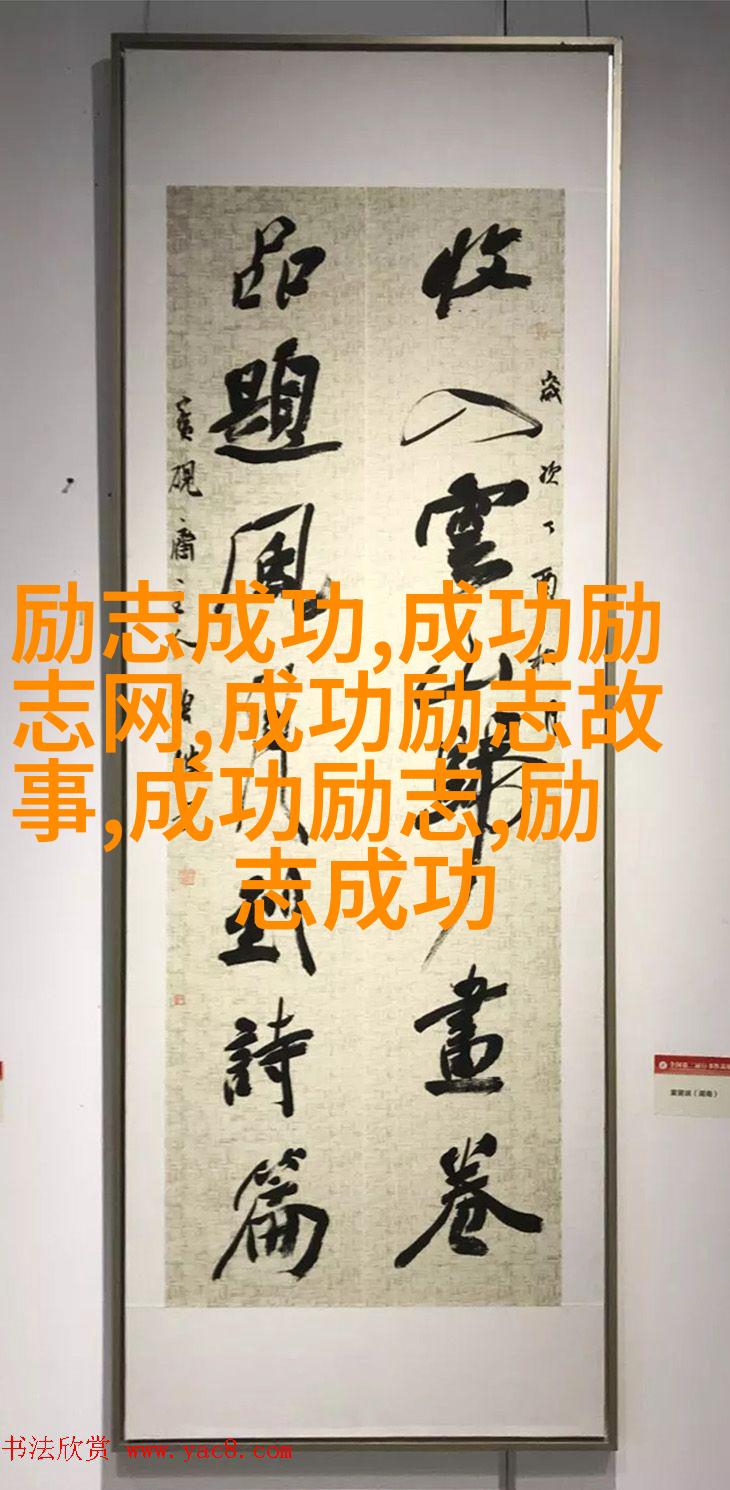 收入雲山歸畫卷
歲次丁酉
品題風月到詩篇
励志成功,成功励
志网,成功励志故
事,成功励志,励
志成功
书法欣赏 www.yac8.com